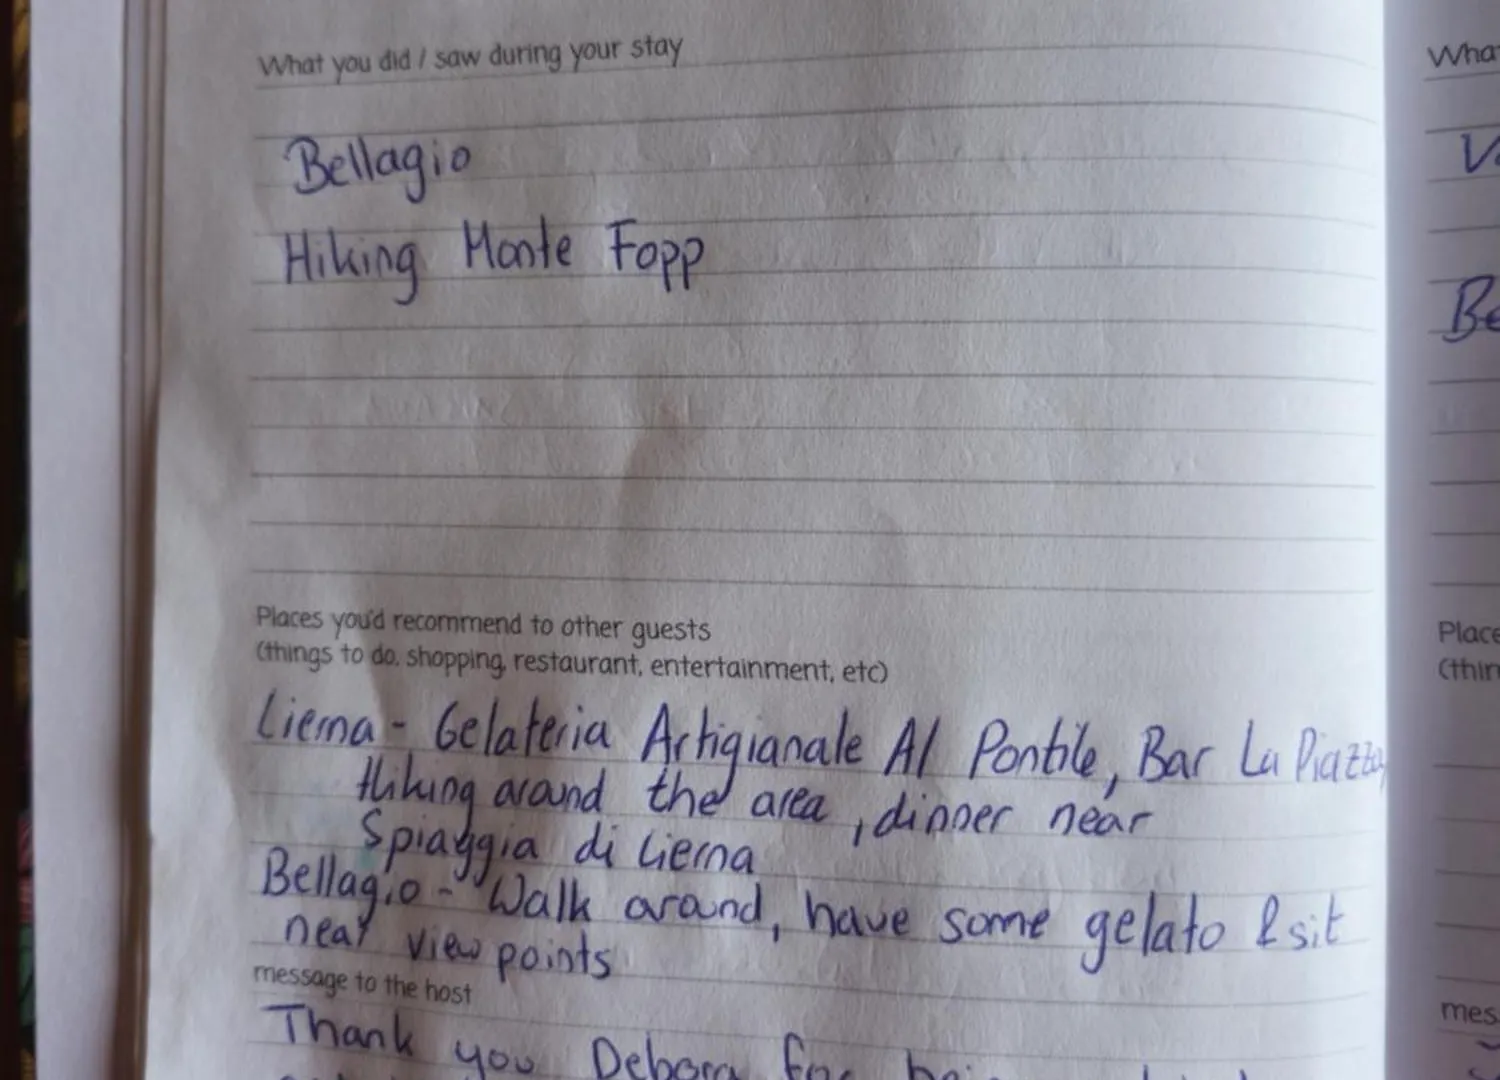 What you did / saw during your stay
Bellagio
Hiking Monte Fopp
Places you'd recommend to other guests
(things to do, shopping, restaurant, entertainment, etc)
Lierna - Gelateria Artigianale Al Pontile, Bar La Piazza,
Hiking around the area, dinner near
Spiaggia di Lierna
Bellagio - Walk around, have some gelato & sit
near view points
message to the host
Thank you Debora for
What
Be
Place
(thin
mes